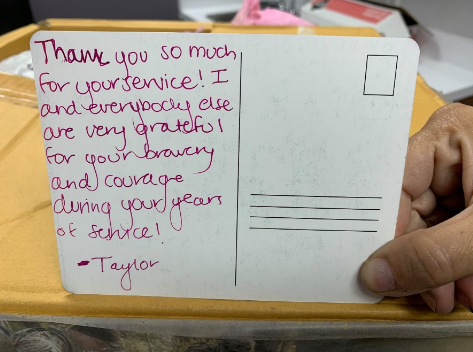 Thank you so much
for your service! I
and everybody else
are very grateful
for your bravery
and courage
during your years
of service!
-Taylor